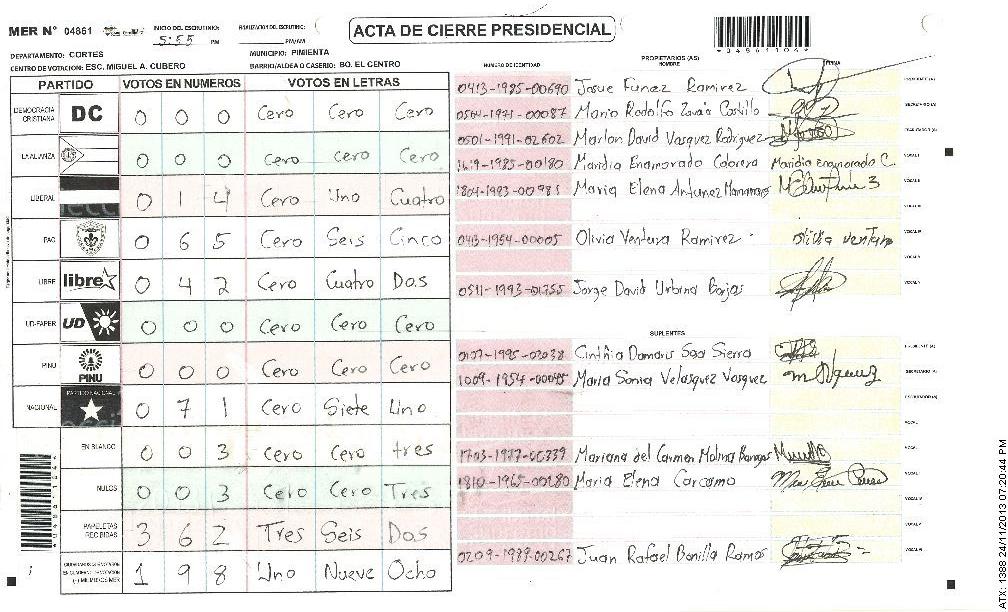 MER N° 04861
INICIO DEL ESCRUTINIO:
5:55 PM
FINALIZACION DEL ESCRUTINIO:
PM/AM
ACTA DE CIERRE PRESIDENCIAL
*04861106*
DEPARTAMENTO: CORTES
MUNICIPIO: PIMIENTA
CENTRO DE VOTACION: ESC. MIGUEL A. CUBERO
BARRIO/ALDEA O CASERIO: BO. EL CENTRO
PARTIDO VOTOS EN NUMEROS VOTOS EN LETRAS
DEMOCRACIA CRISTIANA DC 0 0 0 Cero Cero Cero
LA ALIANZA 0 0 0 Cero Cero Cero
LIBERAL 0 1 4 Cero Uno Cuatro
PAC 0 6 5 Cero Seis Cinco
LIBRE libre 0 4 2 Cero Cuatro Dos
UD-FAPER UD 0 0 0 Cero Cero Cero
PINU PINU 0 0 0 Cero Cero Cero
NACIONAL PARTIDO NACIONAL 0 7 1 Cero Siete Uno
EN BLANCO 0 0 3 Cero Cero tres
NULOS 0 0 3 Cero Cero Tres
PAPELETAS RECIBIDAS 3 6 2 Tres Seis Dos
1 9 8 Uno Nueve Ocho
NUMERO DE IDENTIDAD
PROPIETARIOS (AS)
NOMBRE
FIRMA
0413-1985-00690 Josue Funez Ramirez PRESIDENTE (A)
0504-1971-00087 Mario Rodolfo Castillo SECRETARIO (A)
0501-1991-02602 Marlon David Vasquez Rodriguez ESCRUTADOR (A)
1619-1985-00180 Enamorado VOCAL I
1804-1983-00985 Maria Elena Antunez VOCAL II
0413-1954-00005 Olivia Ventura Ramirez Olivia Ventura
0511-1993-01755 Jorge David Urbina Borjas
SUPLENTES
0107-1995-02038 Cinthia Damaris Sierra PRESIDENTE (A)
1009-1954-00045 Maria Sonia Velasquez Vasquez SECRETARIO (A)
ESCRUTADOR (A)
1703-1977-00339 Mariana del Carmen Molina
1810-1965-00180 Maria Elena Carcamo
0209-1989-00267 Juan Rafael Bonilla Ramos
ATX: 1388 24/11/2013 07:20:44 PM